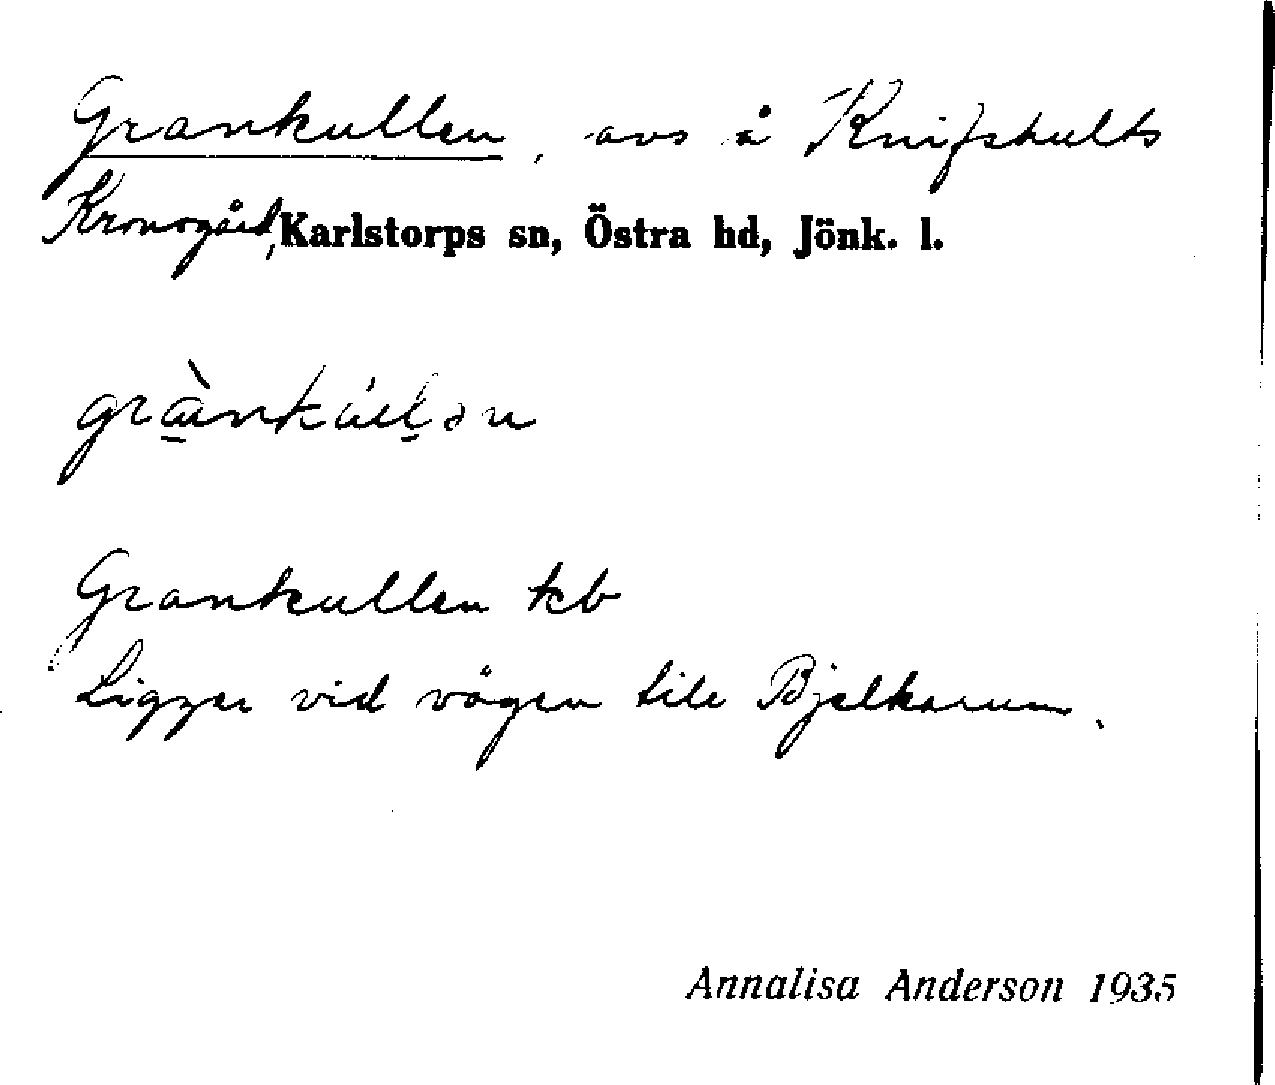 Grankullen, avs å Knifshults
Kronogård, Karlstorps sn, Östra hd, Jönk. l.
Grankullen tcb
Ligger vid vägen till Bjelkarum.
Annalisa Anderson 1935